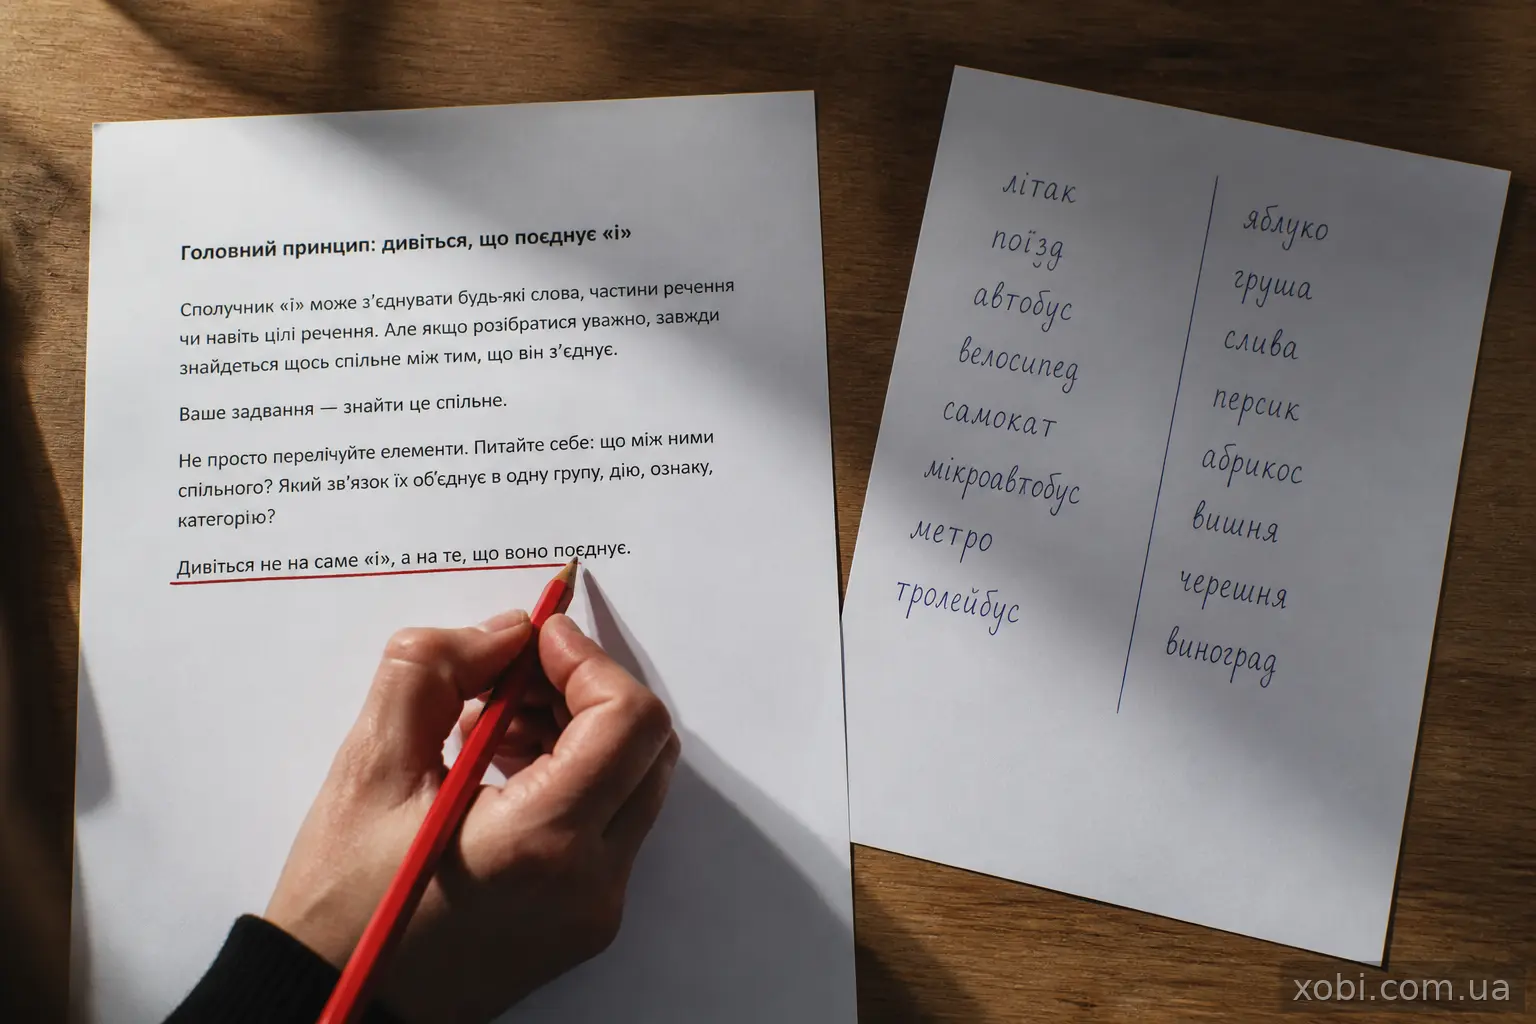 Головний принцип: дивіться, що поєднує «і»
Сполучник «і» може з’єднувати будь-які слова, частини речення
чи навіть цілі речення. Але якщо розібратися уважно, завжди
знайдеться щось спільне між тим, що він з’єднує.
Ваше задвання — знайти це спільне.
Не просто перелічуйте елементи. Питайте себе: що між ними
спільного? Який зв’язок їх об’єднує в одну групу, дію, ознаку,
категорію?
Дивіться не на саме «і», а на те, що воно поєднує.
літак
поїзд
автобус
велосипед
самокат
мікроавтобус
метро
тролейбус
яблуко
груша
слива
персик
абрикос
вишня
черешня
виноград
xobi.com.ua